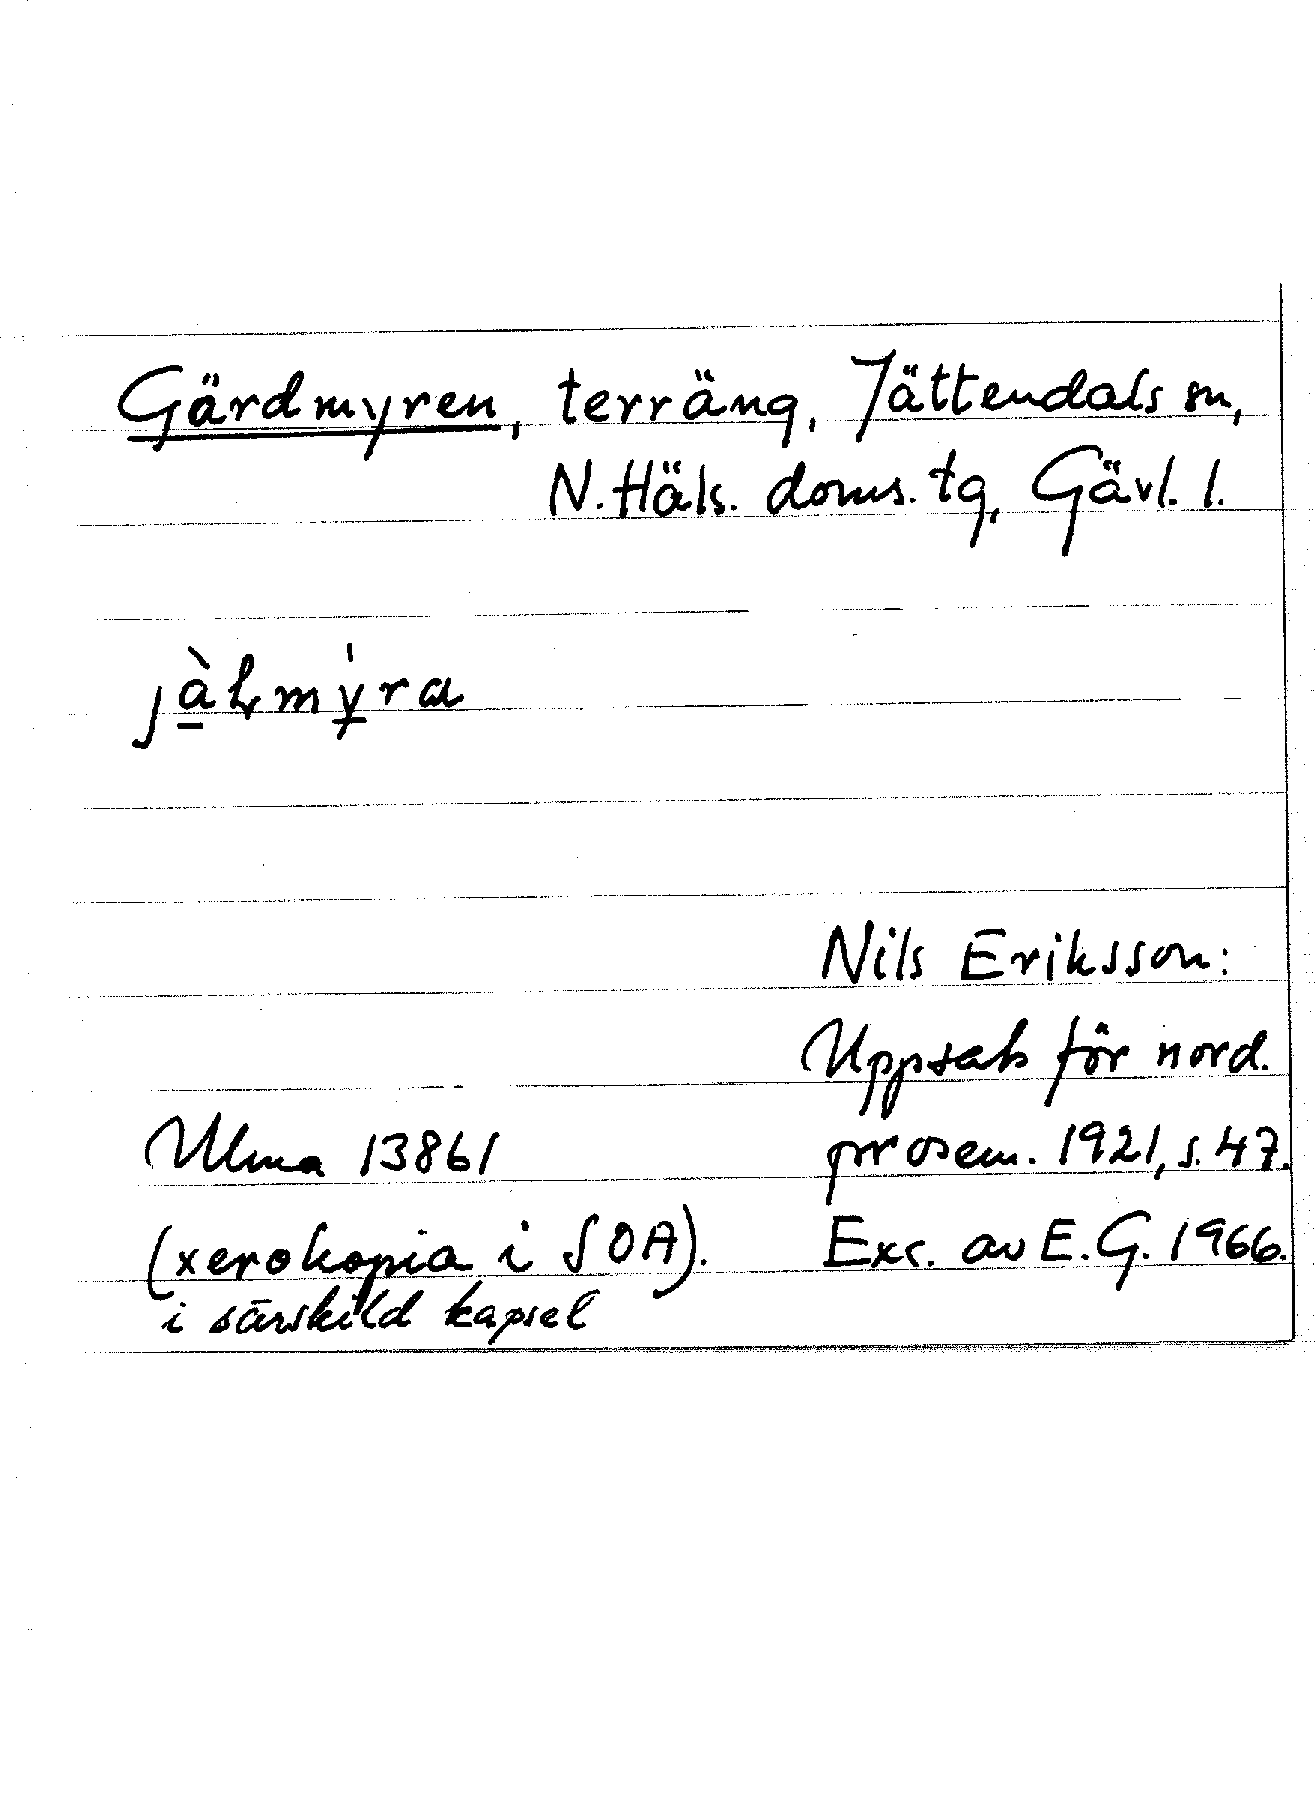 Gärdmyren, terräng, Jättendals sn,
N. Häls. doms. tg, Gävl. l.
Nils Eriksson:
Uppsats för nord.
Ulma 13861 prosem. 1921, s. 47.
(xerokopia i SOA). Exc. av E.G. 1966.
i särskild kapsel